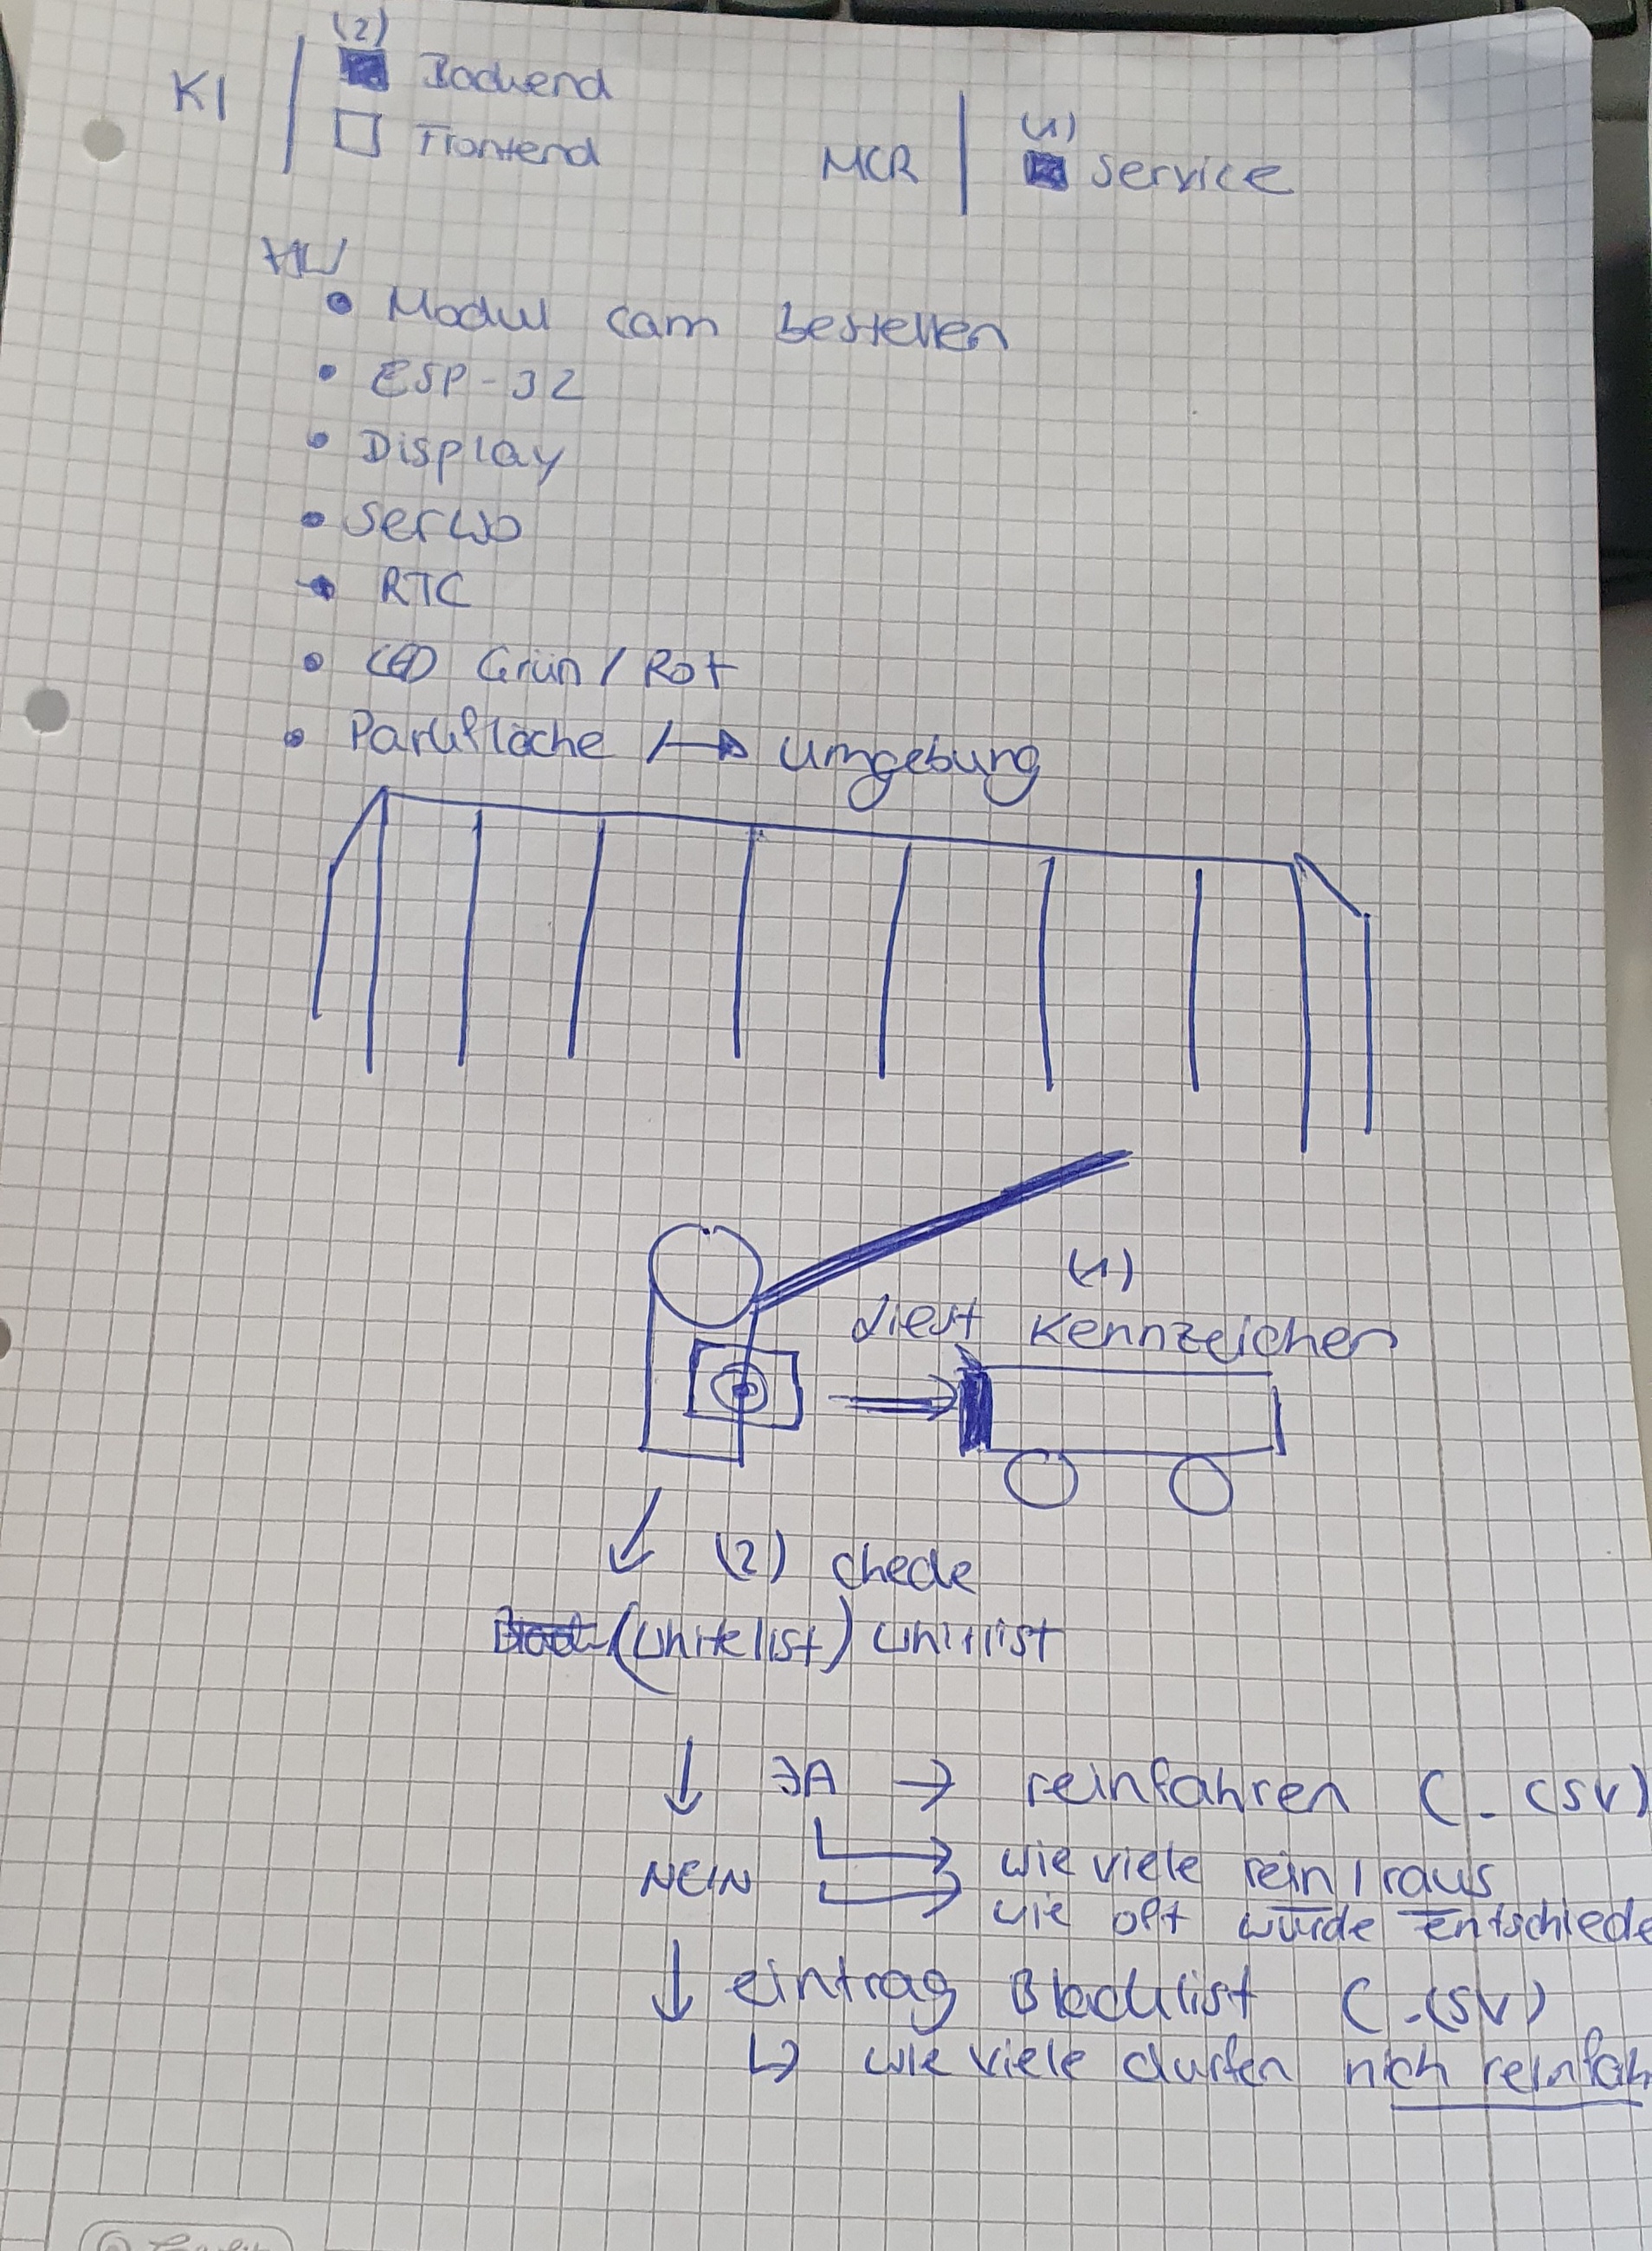 (2)
KI | Backend
Frontend
(1)
MCR | Service
HW
• Modul cam bestellen
• ESP-32
• Display
• Serwo
• RTC
• LED Grün / Rot
• Parkfläche / → umgebung
(1)
liest Kennzeichen
↓ (2) checke
(whitelist) whitlist
↓ JA → reinfahren (.csv)
→ wie viele rein / raus
NEIN → wie oft wurde entschiede
↓ eintrag Blacklist (.csv)
↳ wie viele durfen nich reinfah